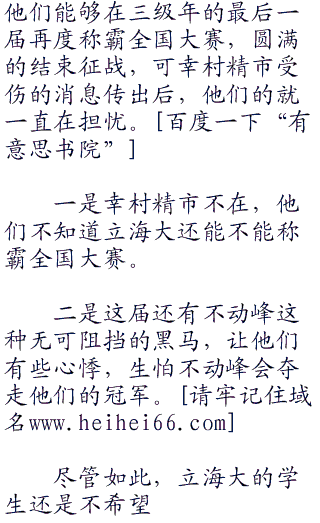 他们能够在三级年的最后一
届再度称霸全国大赛，圆满
的结束征战，可幸村精市受
伤的消息传出后，他们的就
一直在担忧。[百度一下“有
意思书院”]
一是幸村精市不在，他
们不知道立海大还能不能称
霸全国大赛。
二是这届还有不动峰这
种无可阻挡的黑马，让他们
有些心悸，生怕不动峰会夺
走他们的冠军。[请牢记住域
名www.heihei66.com]
尽管如此，立海大的学
生还是不希望